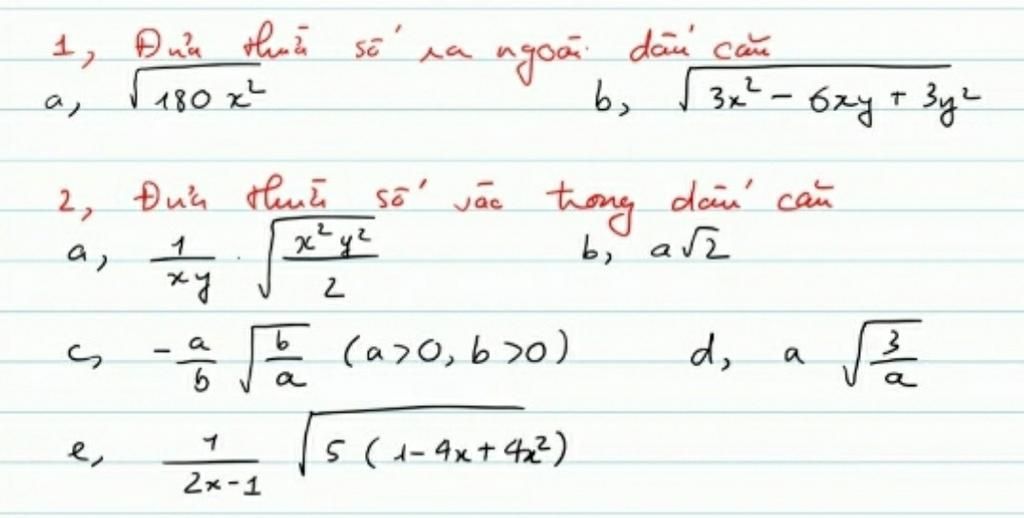 1, Đưa thừa số ra ngoài dấu căn
a, √(180x²) b, √(3x² - 6xy + 3y²)
2, Đưa thừa số vào trong dấu căn
a, 1/(xy) · √(x²y²/2) b, a√2
c, -a/b √(b/a) (a>0, b>0) d, a √(3/a)
e, 1/(2x-1) √(5(1-4x+4x²))